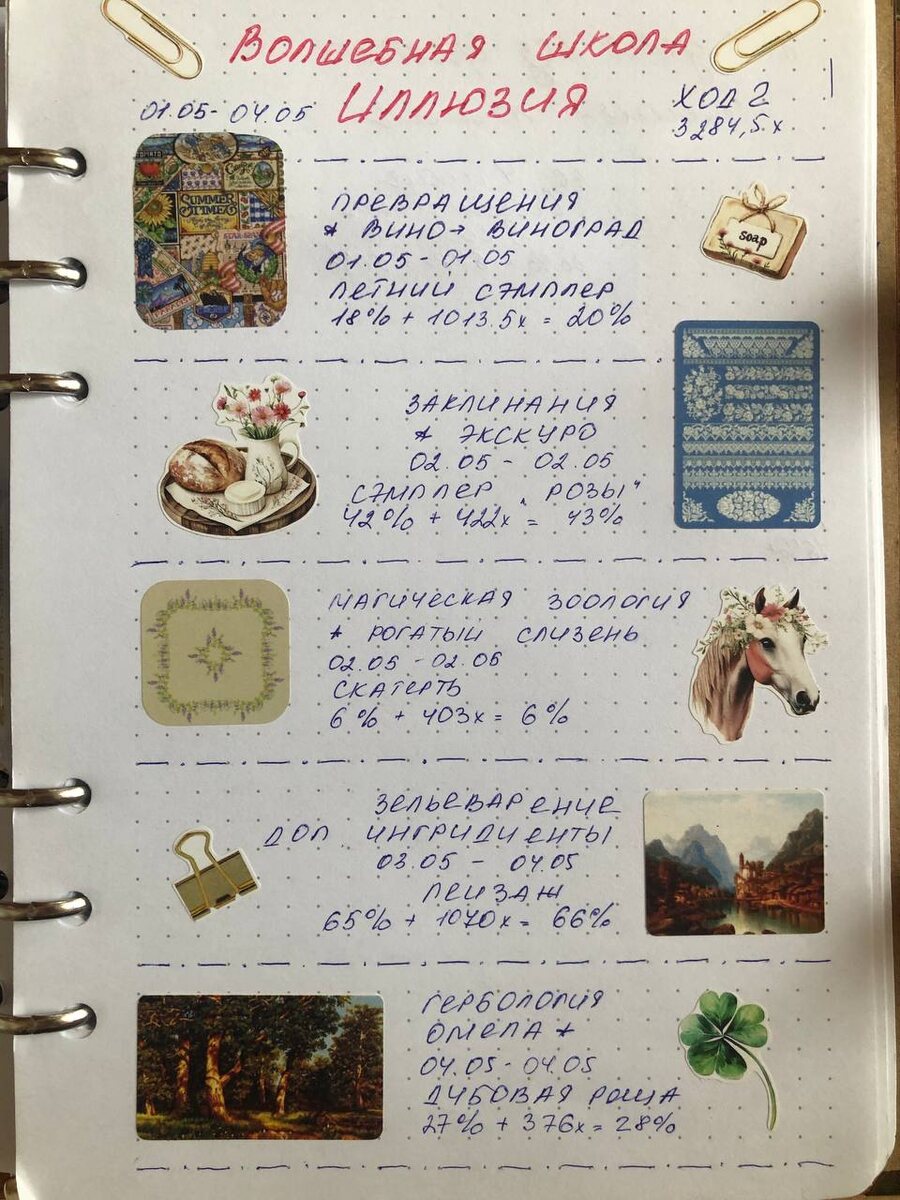 ВОЛШЕБНАЯ ШКОЛА
ИЛЛЮЗИЯ
01.05 - 04.05
ХОД 2
3284,5x
SUMMER
TIME
ПРЕВРАЩЕНИЯ
* ВИНО → ВИНОГРАД
01.05 - 01.05
ЛЕТНИЙ СЭМПЛЕР
18% + 1013.5x = 20%
soap
ЗАКЛИНАНИЯ
* ЭКСКУРО
02.05 - 02.05
СЭМПЛЕР „РОЗЫ"
42% + 422x = 43%
МАГИЧЕСКАЯ ЗООЛОГИЯ
* РОГАТЫЙ СЛИЗЕНЬ
02.05 - 02.05
СКАТЕРТЬ
6% + 403x = 6%
ЗЕЛЬЕВАРЕНИЕ
ДОП ИНГРИДИЕНТЫ
03.05 - 04.05
ПЕИЗАЖ
65% + 1070x = 66%
ГЕРБОЛОГИЯ
ОМЕЛА *
04.05 - 04.05
ДУБОВАЯ РОЩА
27% + 376x = 28%